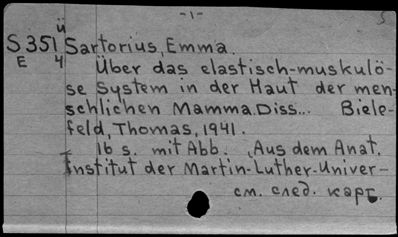 -1-
S
ü
S 351 Sartorius, Emma.
E 4
Über das elastisch-muskulö-
se System in der Haut der men-
schlichen Mamma. Diss... Biele-
feld, Thomas, 1941.
16 s. mit Abb. Aus dem Anat.
Institut der Martin-Luther-Univer-
см. след. карт.